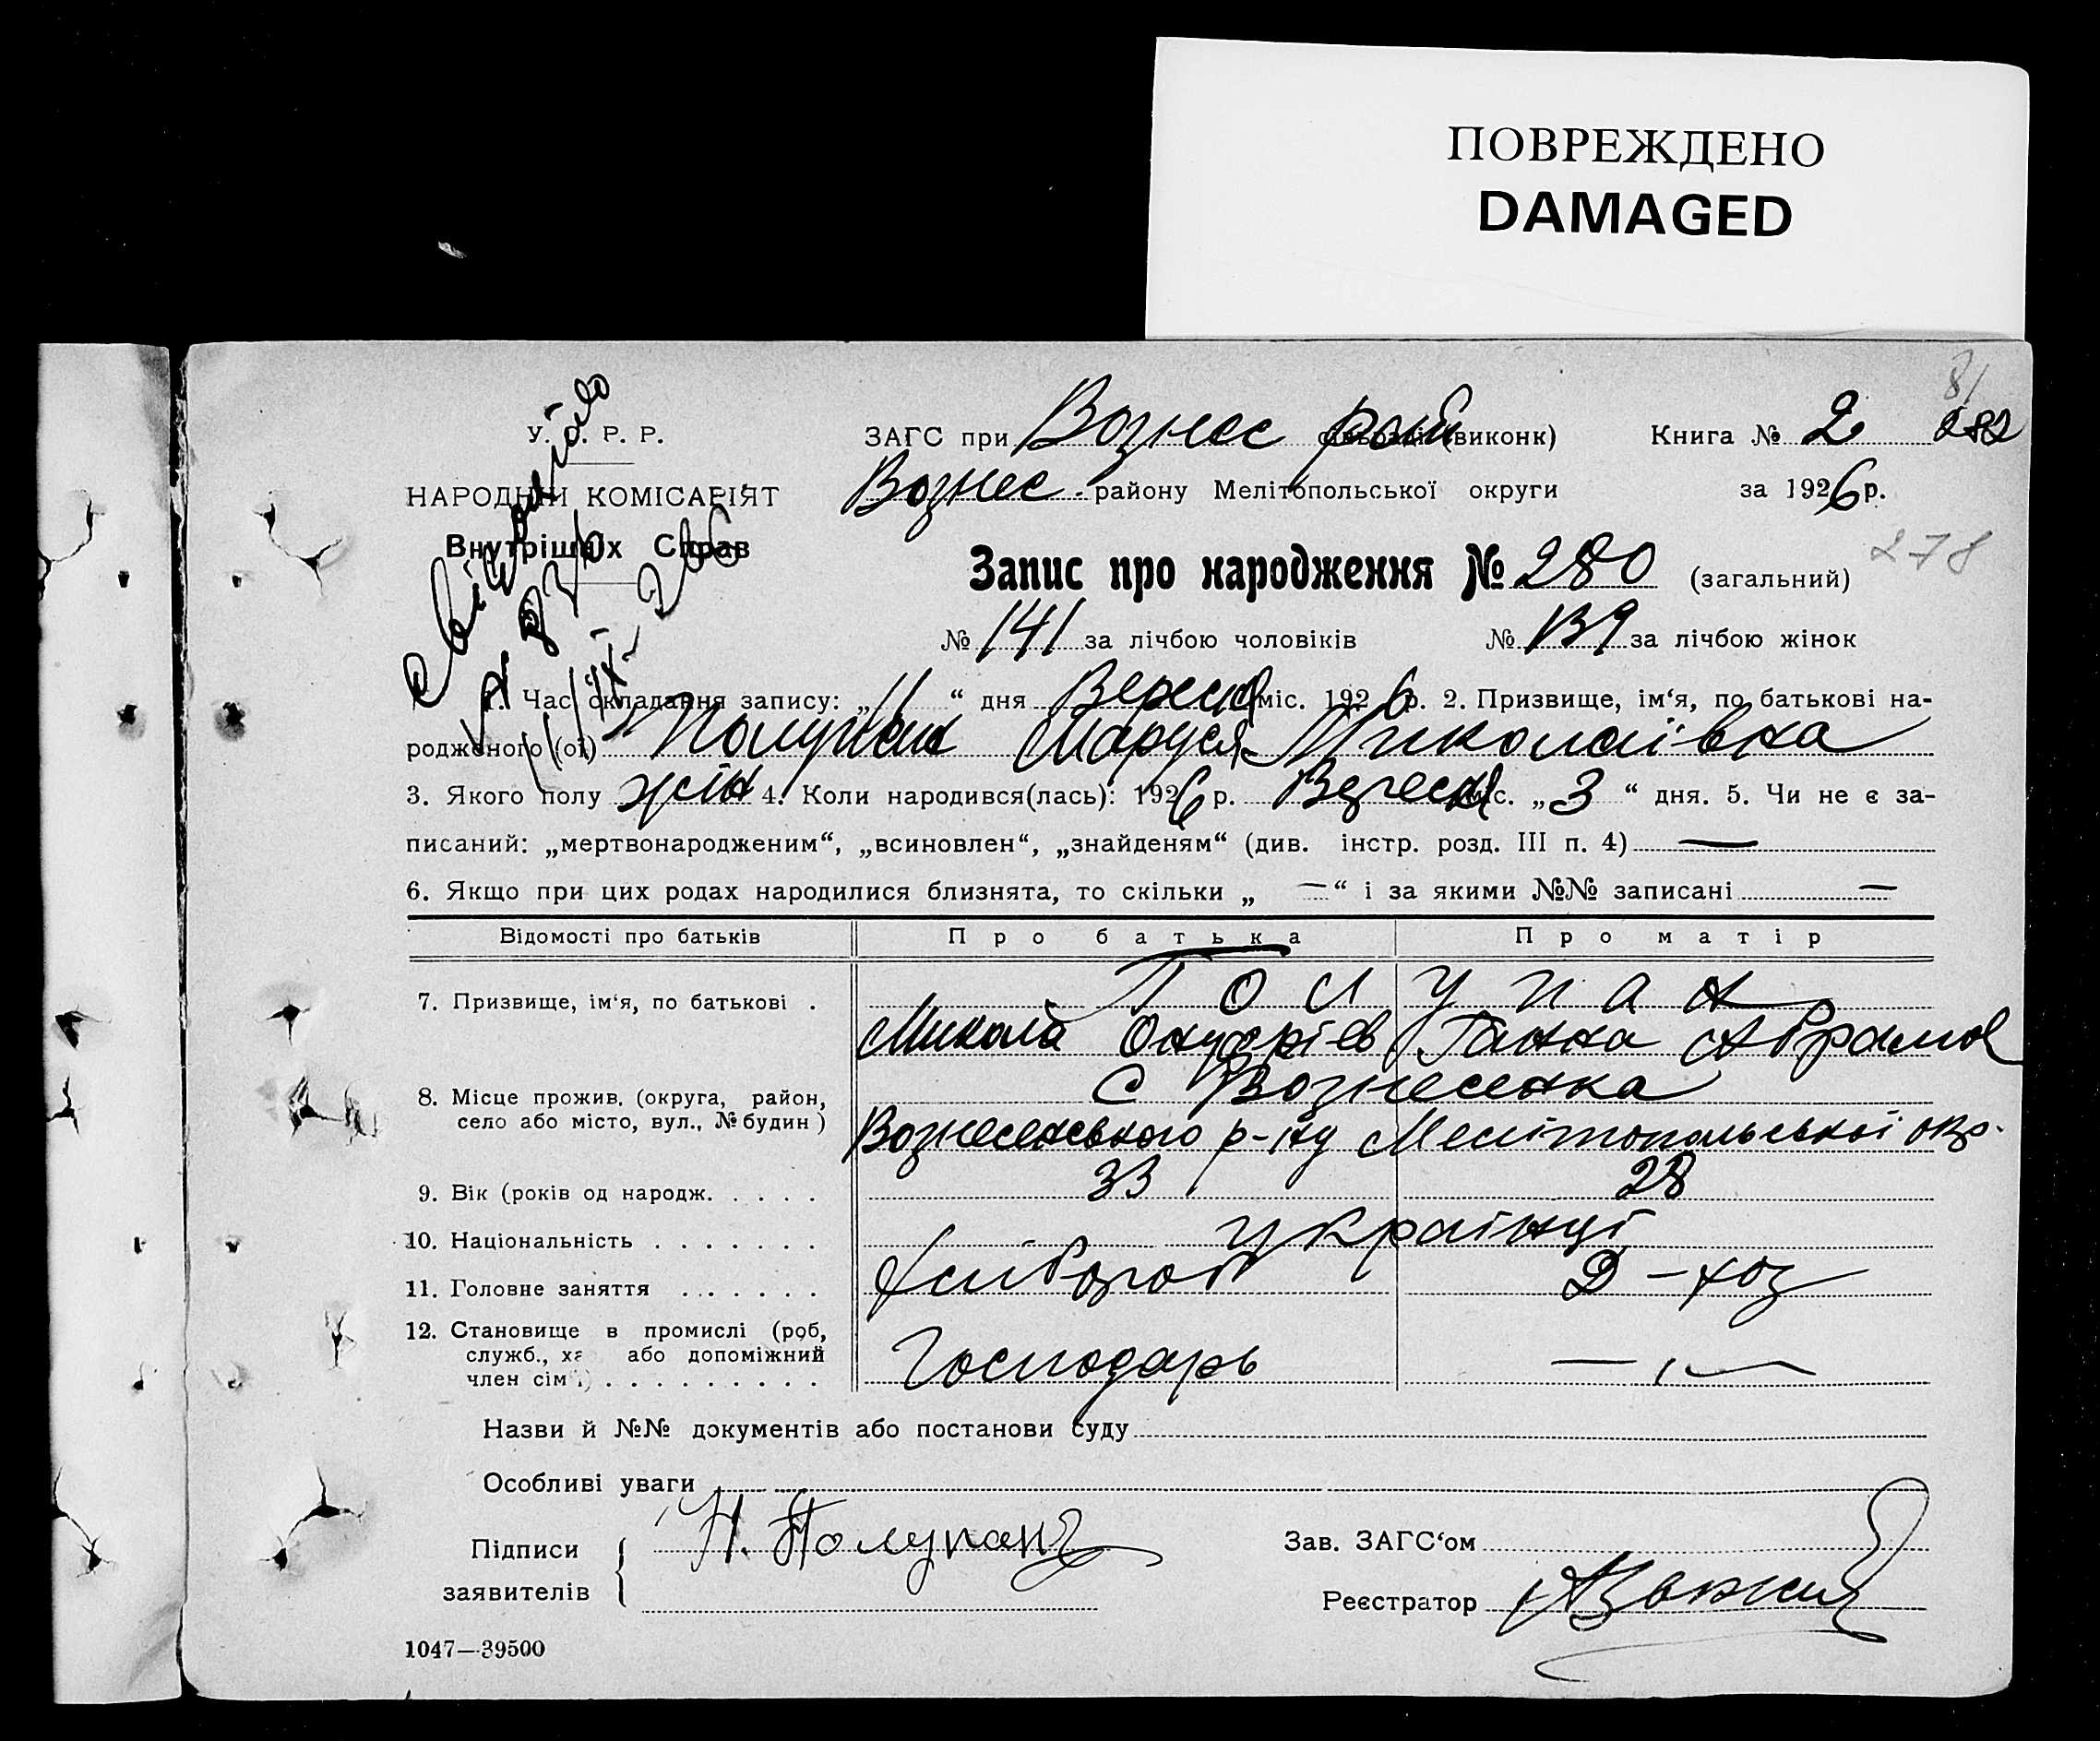 ПОВРЕЖДЕНО
DAMAGED
81
У. С. Р. Р.
НАРОДНІЙ КОМІСАРІЯТ
Внутрішніх Справ
ЗАГС при Вознес рай (виконк)
Книга № 2 282
Вознес. району Мелітопольської округи
за 1926 р.
Запис про народження № 280 (загальний) 278
№ 141 за лічбою чоловіків № 139 за лічбою жінок
11/IX-26
1. Час складання запису: „11“ дня Вересня міс. 1926 р. 2. Призвище, ім‘я, по батькові на-
родженого (ої) Полупан Маруся Миколаївна
3. Якого полу жін 4. Коли народився(лась): 1926 р. Вересня міс. „3“ дня. 5. Чи не є за-
писаний: „мертвонародженим“, „всиновлен“, „знайденям“ (див. інстр. розд. III п. 4) —
6. Якщо при цих родах народилися близнята, то скільки „—“ і за якими №№ записані —
Відомості про батьків Про батька Про матір
7. Призвище, ім‘я, по батькові . Полупан
Микола Онуфріев Ганна Аврамов
8. Місце прожив. (округа, район, с Вознесенка
село або місто, вул., № будин) Вознесенського р-ну Мелітопольської окр.
9. Вік (років од народж. . . . . 33 28
10. Національність . . . . . . . українці
11. Головне заняття . . . . . . . хлібороб Д-хоз
12. Становище в промислі (роб,
служб., ха або допоміжний Господарь — „ —
член сім‘ї) . . . . . . . . .
Назви й №№ документів або постанови суду
Особливі уваги
Підписи Н. Полупан Зав. ЗАГС‘ом
заявителів Реєстратор
1047—39500